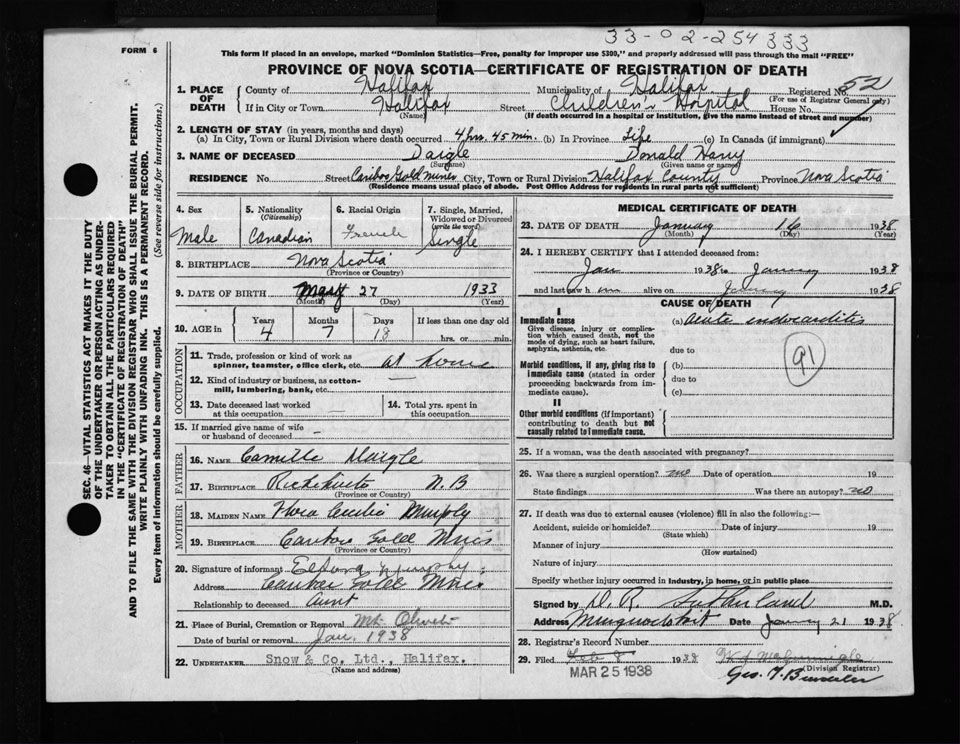 33-02-254333
FORM 6
This form if placed in an envelope, marked "Dominion Statistics—Free, penalty for improper use $300," and properly addressed will pass through the mail "FREE"
PROVINCE OF NOVA SCOTIA—CERTIFICATE OF REGISTRATION OF DEATH
1. PLACE OF DEATH County of Halifax Municipality of Halifax Registered No. 52
(For use of Registrar General only)
If in City or Town Halifax Street Children's Hospital House No.
(Name) (If death occurred in a hospital or institution, give the name instead of street and number)
2. LENGTH OF STAY (in years, months and days)
(a) In City, Town or Rural Division where death occurred 4 hrs. 45 min. (b) In Province Life (c) In Canada (if immigrant)
3. NAME OF DECEASED Daigle Donald Harry
(Surname) (Given name or names)
RESIDENCE No. Street Caribou Gold Mines City, Town or Rural Division Halifax County Province Nova Scotia
(Residence means usual place of abode. Post Office Address for residents in rural parts not sufficient)
4. Sex Male
5. Nationality (Citizenship) Canadian
6. Racial Origin French
7. Single, Married, Widowed or Divorced (write the word) Single
8. BIRTHPLACE Nova Scotia
(Province or Country)
9. DATE OF BIRTH May 27 1933
(Month) (Day) (Year)
10. AGE in Years Months Days If less than one day old
4 7 18 hrs. or min.
OCCUPATION
11. Trade, profession or kind of work as spinner, teamster, office clerk, etc. at home
12. Kind of industry or business, as cotton-mill, lumbering, bank, etc. —
13. Date deceased last worked at this occupation —
14. Total yrs. spent in this occupation
15. If married give name of wife or husband of deceased —
FATHER
16. NAME Camille Daigle
17. BIRTHPLACE N.B
(Province or Country)
MOTHER
18. MAIDEN NAME Flora Cecilia Murphy
19. BIRTHPLACE Caribou Gold Mines
(Province or Country)
20. Signature of informant Murphy
Address Caribou Gold Mines
Relationship to deceased Aunt
21. Place of Burial, Cremation or Removal Mt. Olivet
Date of burial or removal Jan. 1938
22. UNDERTAKER Snow & Co. Ltd., Halifax.
(Name and address)
MEDICAL CERTIFICATE OF DEATH
23. DATE OF DEATH January 16 1938
(Month) (Day) (Year)
24. I HEREBY CERTIFY that I attended deceased from:
Jan 1938 to January 1938
and last saw h im alive on January 1938
CAUSE OF DEATH
I
Immediate cause (a) Acute endocarditis
Give disease, injury or complication which caused death, not the mode of dying, such as heart failure, asphyxia, asthenia, etc.
due to
91
Morbid conditions, if any, giving rise to immediate cause (stated in order proceeding backwards from immediate cause). (b)
due to
(c)
II
Other morbid conditions (if important) contributing to death but not causally related to immediate cause.
25. If a woman, was the death associated with pregnancy?
26. Was there a surgical operation? no Date of operation 19
State findings Was there an autopsy? no
27. If death was due to external causes (violence) fill in also the following:—
Accident, suicide or homicide? Date of injury 19
(State which)
Manner of injury
(How sustained)
Nature of injury
Specify whether injury occurred in industry, in home, or in public place
Signed by D. R. Sutherland M.D.
Address Musquodoboit Date January 21 1938
28. Registrar's Record Number
29. Filed Feb 8 1938
(Division Registrar)
MAR 25 1938
SEC. 46—VITAL STATISTICS ACT MAKES IT THE DUTY
OF THE UNDERTAKER OR PERSON ACTING AS UNDER-
TAKER TO OBTAIN ALL THE PARTICULARS REQUIRED
IN THE "CERTIFICATE OF REGISTRATION OF DEATH"
AND TO FILE THE SAME WITH THE DIVISION REGISTRAR WHO SHALL ISSUE THE BURIAL PERMIT.
WRITE PLAINLY WITH UNFADING INK. THIS IS A PERMANENT RECORD.
Every item of information should be carefully supplied. (See reverse side for instructions.)